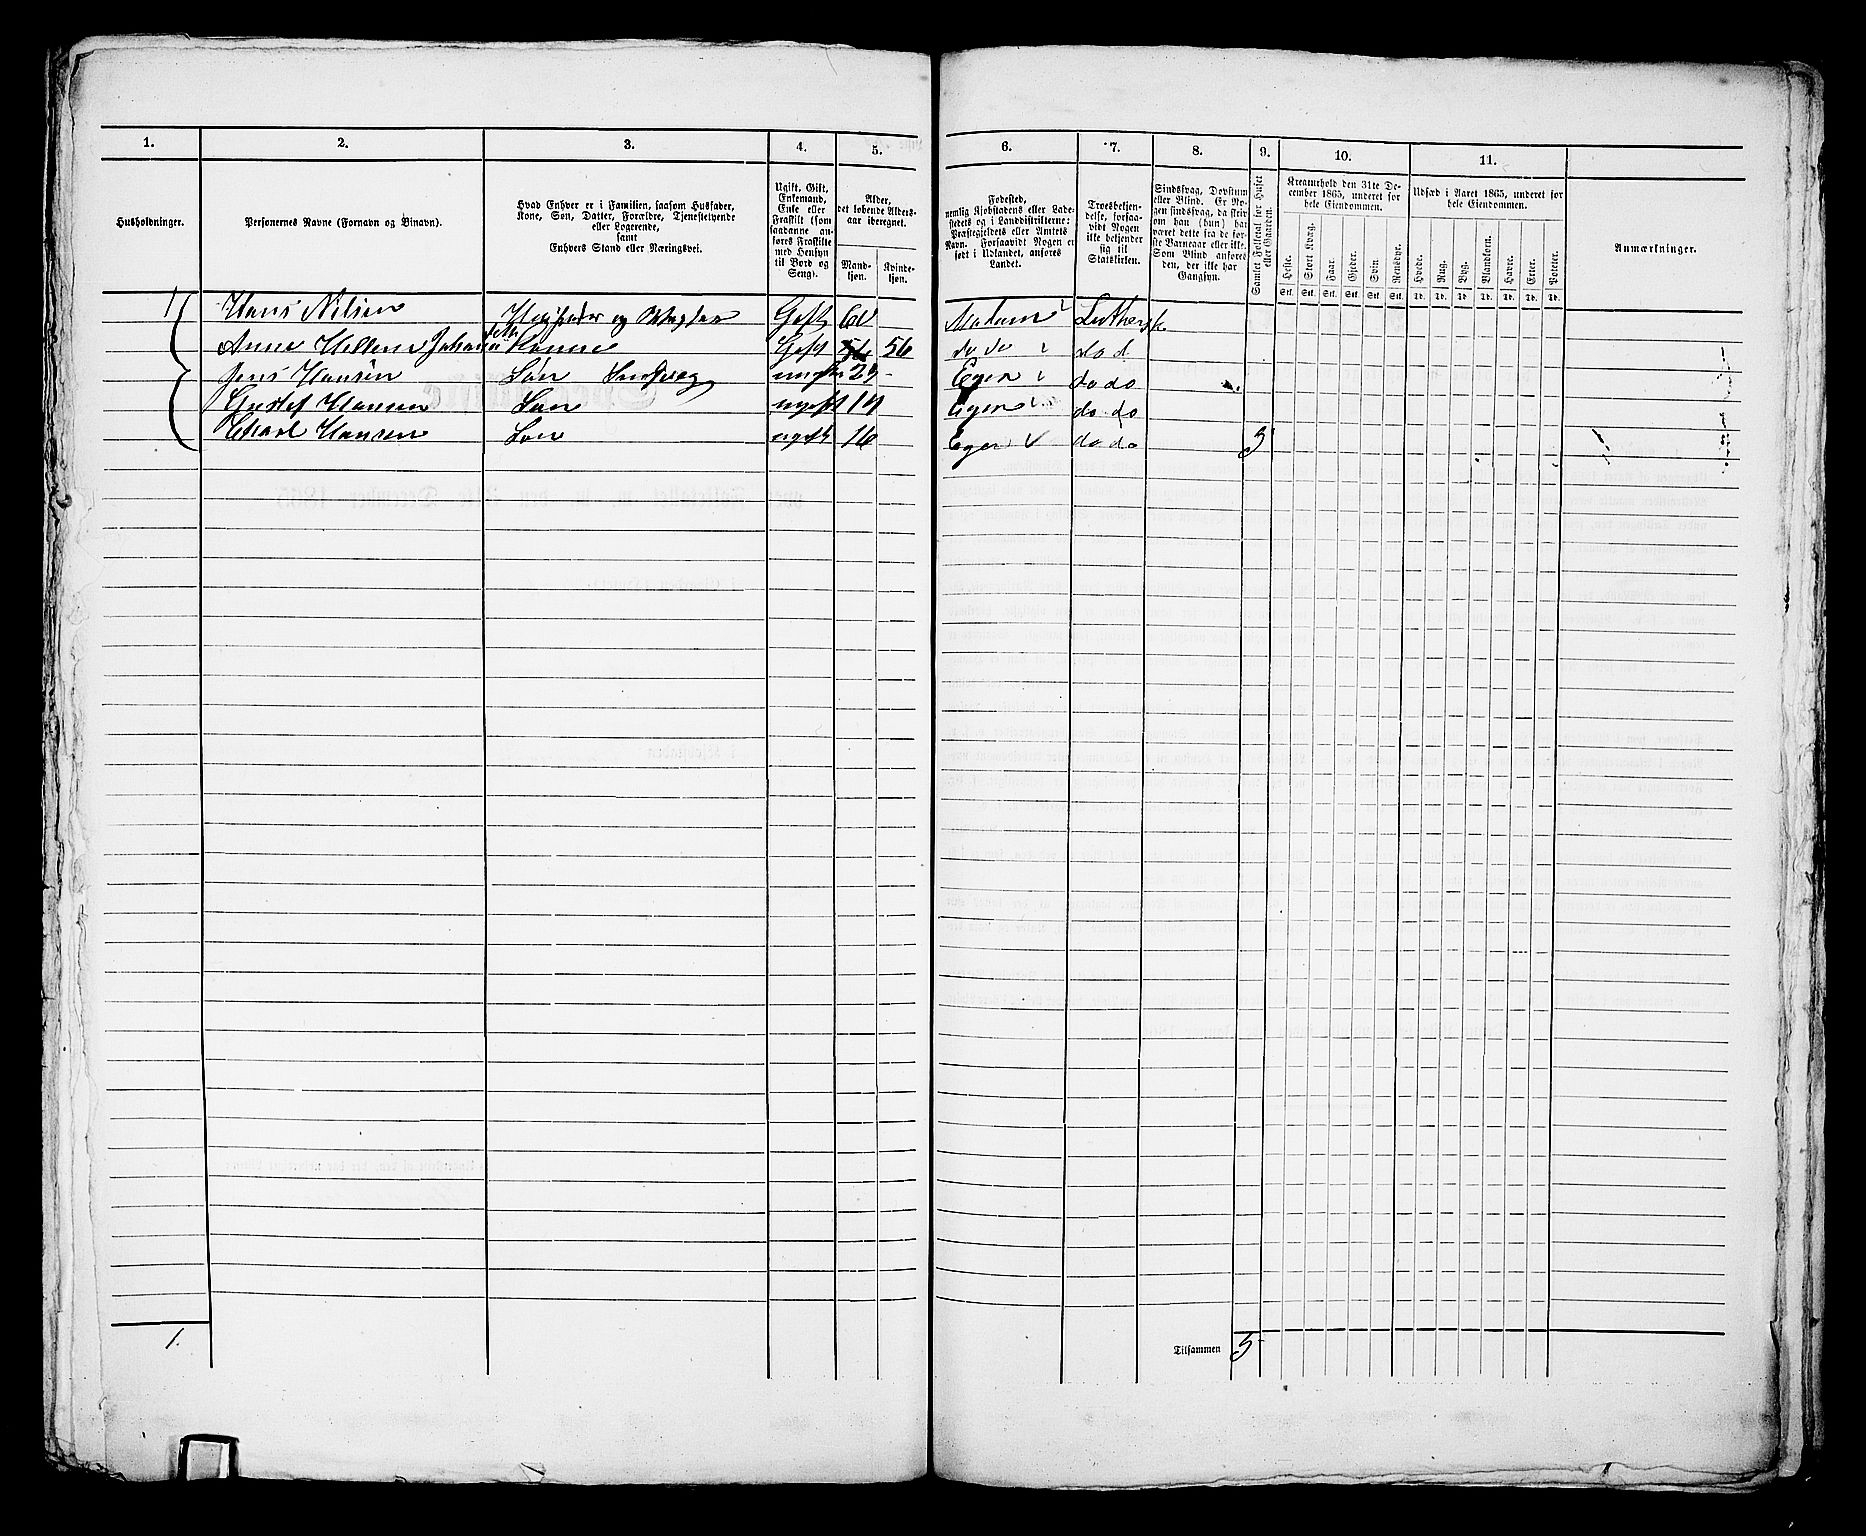 1. 2. 3. 4. 5. 6. 7. 8. 9. 10. 11.
Husholdninger.
Personernes Navne (Fornavn og Binavn).
Hvad Enhver er i Familien, saasom Husfader,
Kone, Søn, Datter, Forældre, Tjenestetyende
eller Logerende,
samt
Enhvers Stand eller Næringsvei.
Ugift, Gift,
Enkemand,
Enke eller
Fraskilt (som
saadanne an-
føres Fraskilte
med Hensyn
til Bord og
Seng).
Alder,
det løbende Alders-
aar iberegnet.
Mand-
kjøn.
Kvinde-
kjøn.
Fødested,
nemlig Kjøbstadens eller Lade-
stedets og i Landdistrikterne:
Præstegjeldets eller Amtets
Navn. Forsaavidt Nogen er
født i Udlandet, anføres
Landet.
Troesbekjen-
delse, forsaa-
vidt Nogen
ikke bekjender
sig til
Statskirken.
Sindssvag, Døvstum
eller Blind. Er No-
gen sindssvag, da skrives
om han (hun) har
været dette fra de før-
ste Barneaar eller ikke.
Som Blind anføres
den, der ikke har
Gangsyn.
Samlet Folketal for Huset
eller Gaarden.
Kreaturhold den 31te De-
cember 1865, underet for
hele Eiendommen.
Heste. Stort Kvæg. Faar. Gjeder. Svin. Rensdyr.
Stk. Stk. Stk. Stk. Stk. Stk.
Udsæd i Aaret 1865, underet for
hele Eiendommen.
Hvede. Rug. Byg. Blandkorn. Havre. Erter. Poteter.
Td. Td. Td. Td. Td. Td. Td.
Anmærkninger.
1 Hans Nilsen Husfader og Gift 60 Modum Luthersk
Anne Hellene Johans Konne Gift 56 do do do d
Jens Hansen Søn Sindsvag ungift 29 Eger do do
Gustef Hansen Søn ugift 19 Eger do do
Charl Hansen Søn ugift 16 Eger do do 5
1. Tilsammen 5